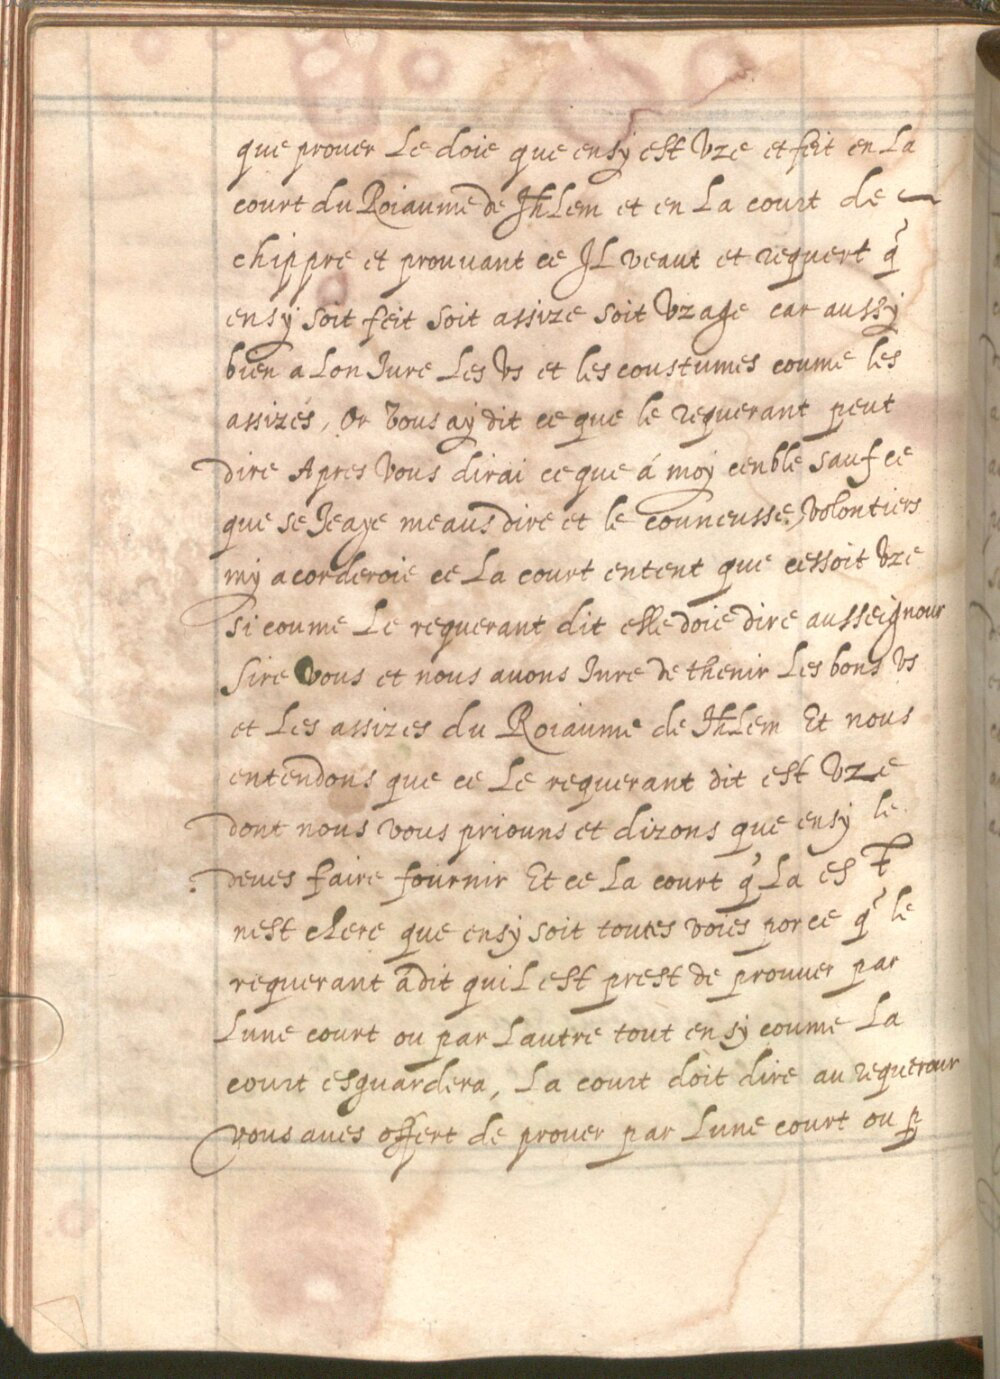 que prouer Le doie que ensy est Vze et feit en La
court du Roiaume de JhLem et en La court de
chippre et prouuant ce JL veaut et requert q̃
ensy soit feit soit assize soit Vzage car aussy
bien a Lon Jure Les Vs et les coustumes coume les
assizes, Or Vous ay dit ce que le requerant peut
dire Apres Vous dirai ce que á moy cenble sauf ce
que se Jeaye meaus dire et le couneusse, Volontiers
my acorderoie ce La court entent que cessoit Vze
si coume Le requerant dit elle doie dire ausseignour
Sire Vous et nous auons Jure de thenir Les bons Vs
et Les assizes du Roiaume de JhLem Et nous
entendons que ce Le requerant dit est Vze
dont nous vous priouns et dizons que ensy le
deues faire fournir Et ce La court q̃ La es
nest clere que ensy soit toutes voies por ce q̃ le
requerant a dit quiL est prest de prouuer par
Lune court ou par Lautre tout ensy coume La
court esguardera, La court doit dire au requerour
vous aues offert de prouer par Lune court ou p̱